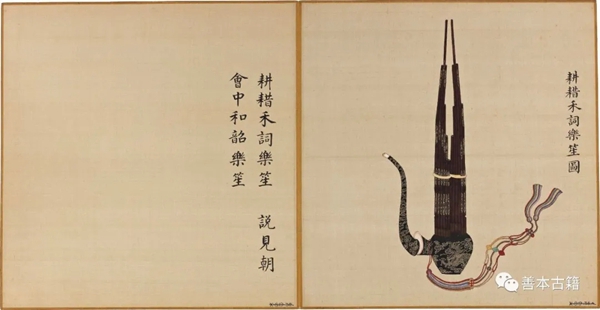 耕耤禾詞樂笙圖
耕耤禾詞樂笙 說見朝
會中和韶樂笙
善本古籍